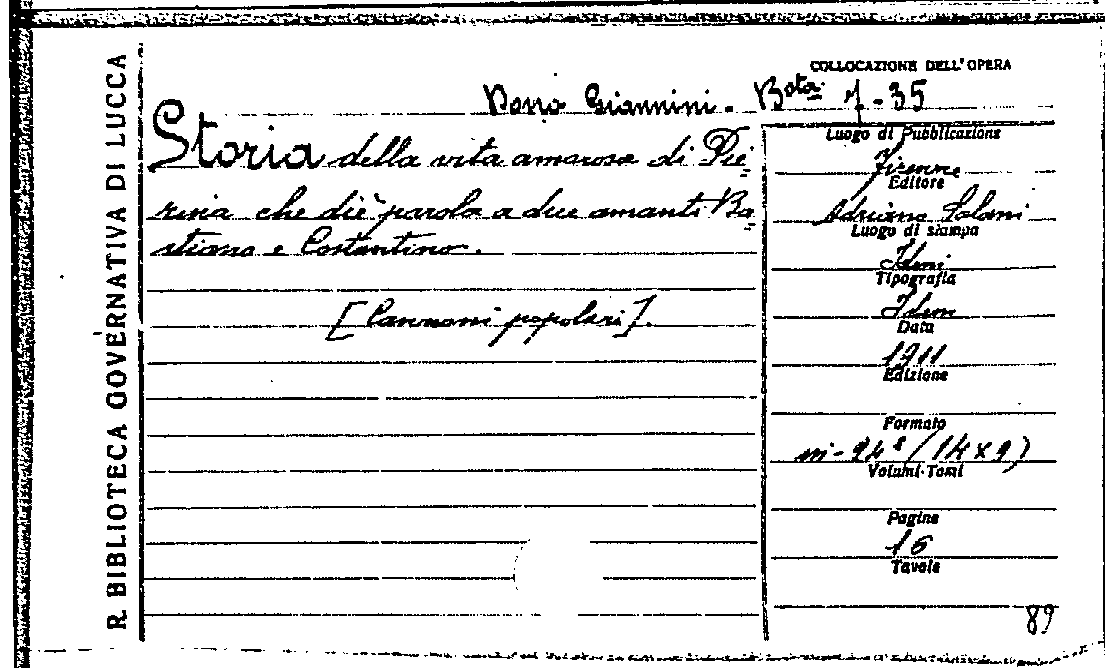 COLLOCAZIONE DELL'OPERA
Dono Giannini. Bsta 7-35
Storia della vita amorosa di Pie
rina che diè parola a due amanti Ba
stiano e Costantino.
[Canzoni popolari].
R. BIBLIOTECA GOVERNATIVA DI LUCCA
Luogo di Pubblicazione
Firenze
Editore
Adriano Salani
Luogo di stampa
Idem
Tipografia
Idem
Data
1911
Edizione
Formato
in-24° (14x9)
Volumi-Tomi
Pagine
16
Tavole
89